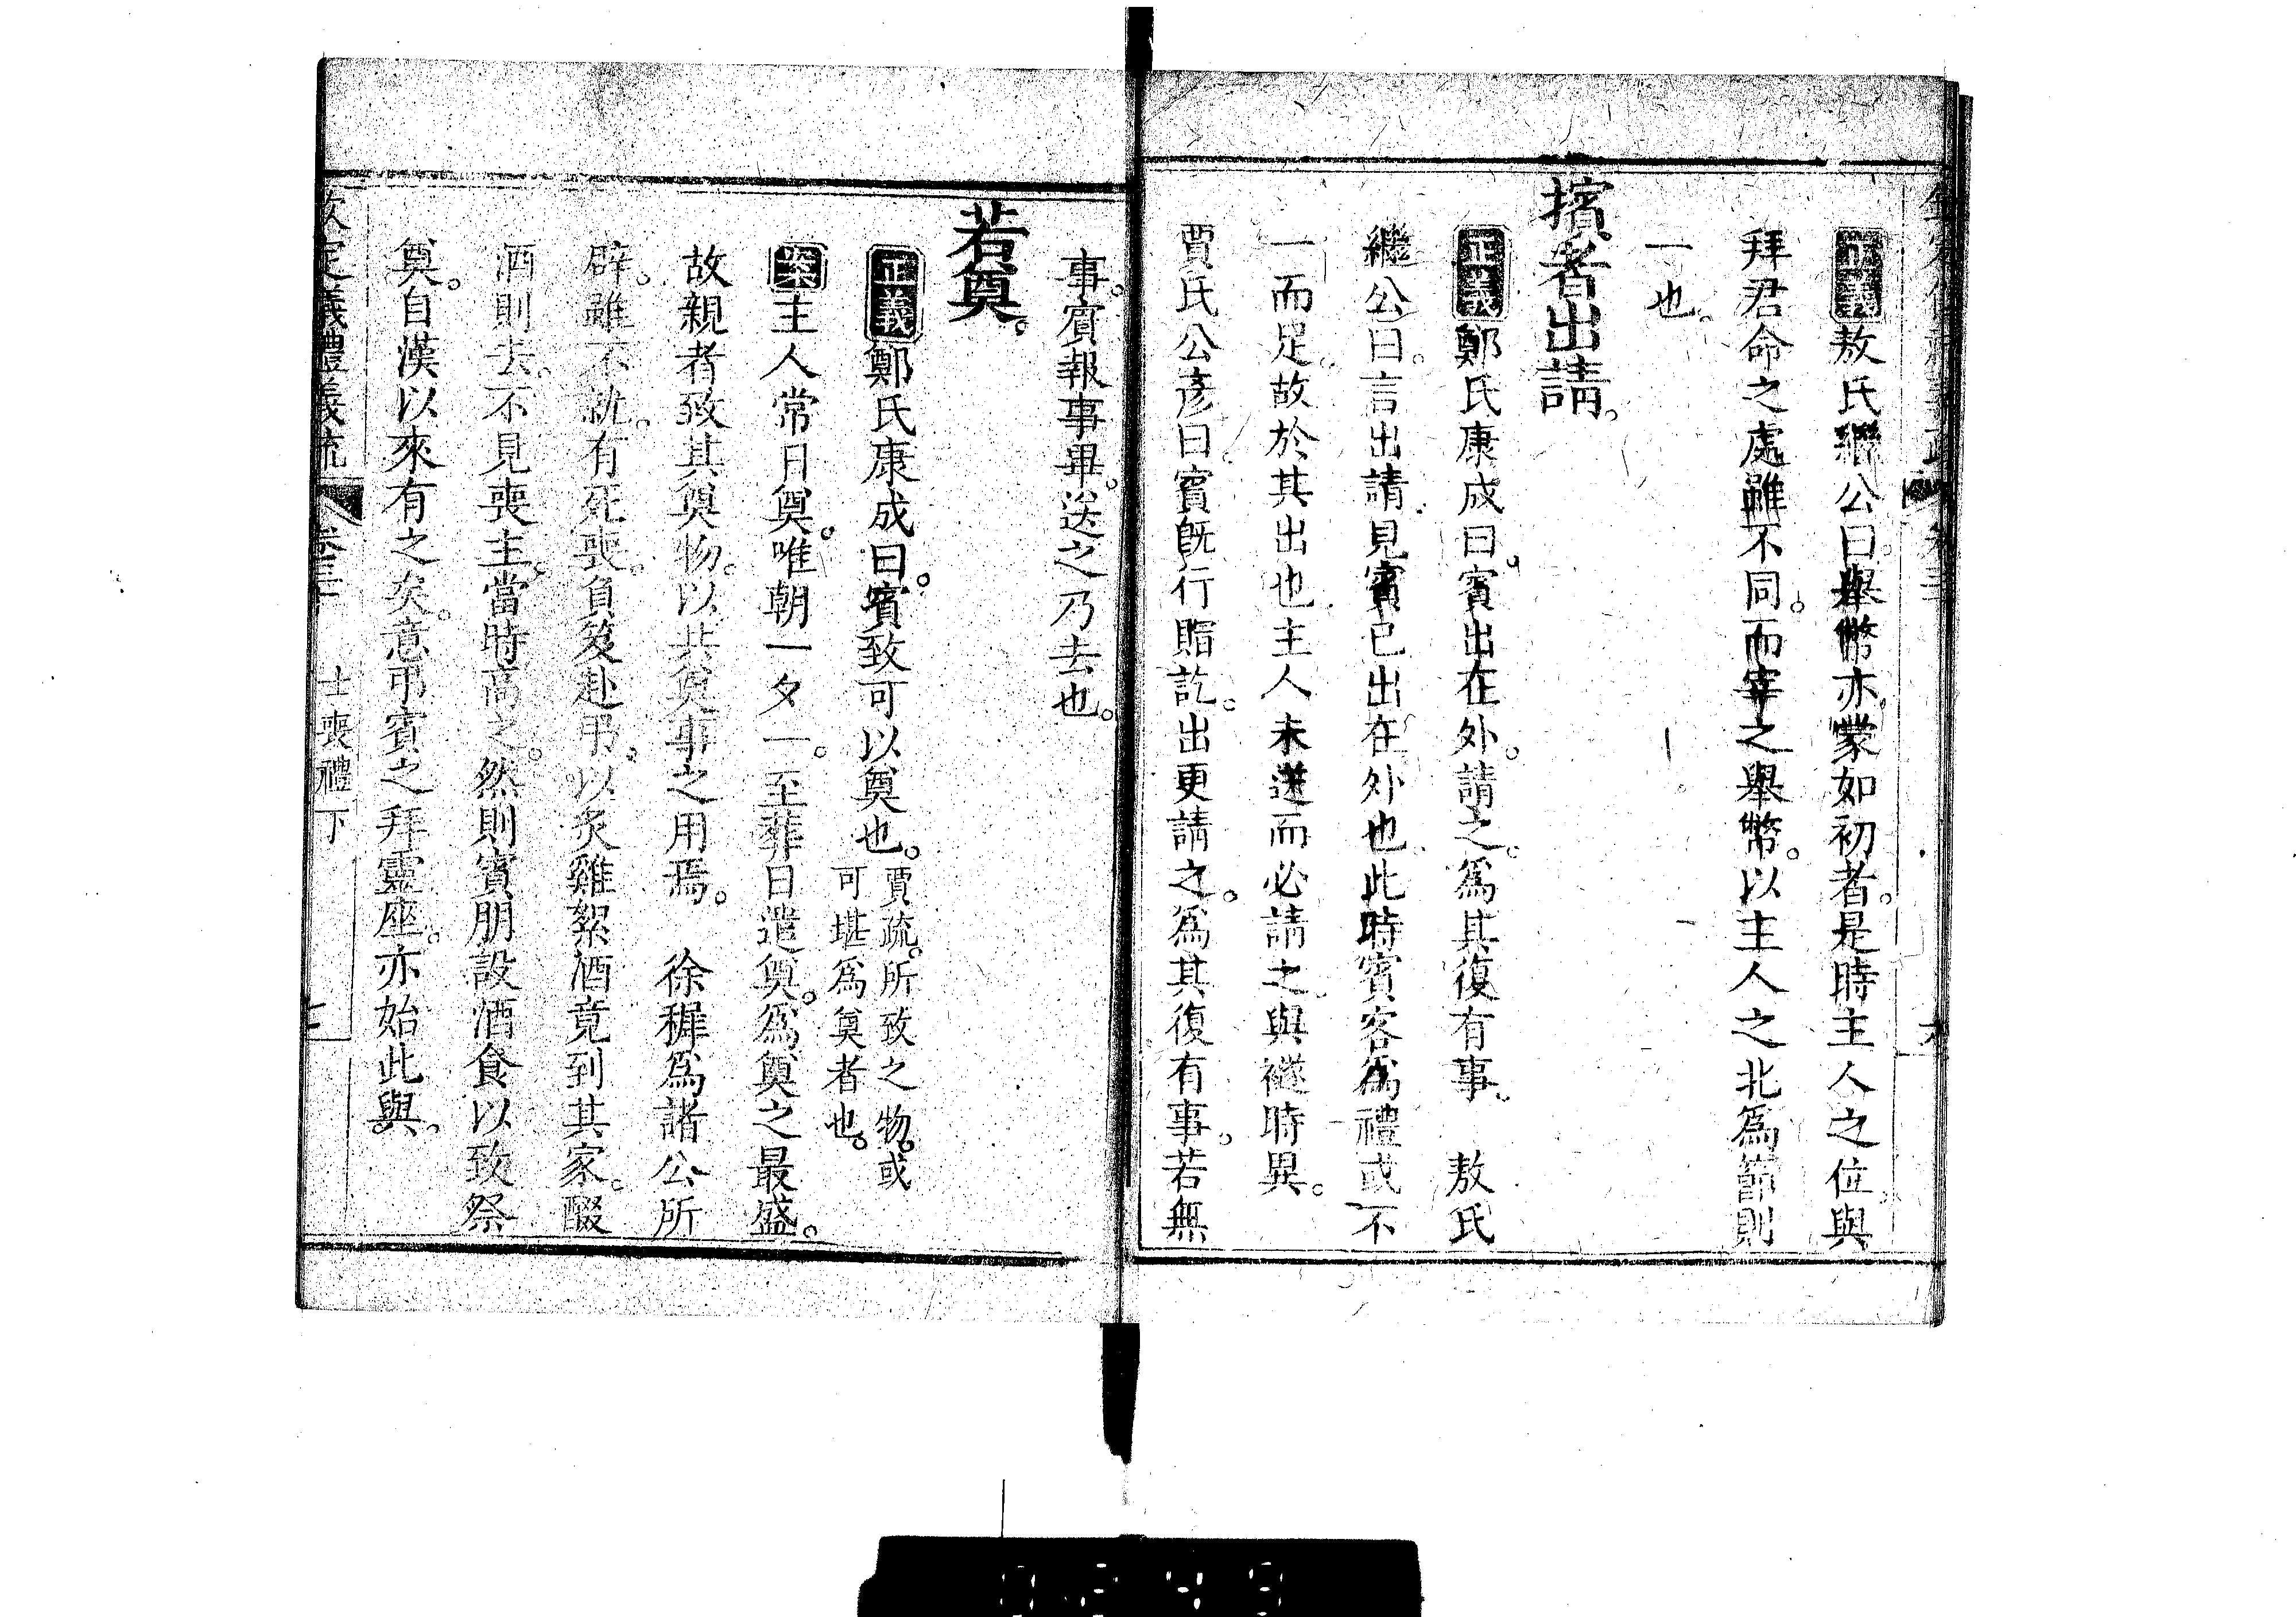 正義敖氏繼公曰。舉幣亦蒙如初者。是時主人之位。與
拜君命之處雖不同。而宰之舉幣。以主人之北爲節則
一也。
擯者出請。
正義鄭氏康成曰。賓出在外。請之。爲其復有事。　敖氏
繼公曰。言出請。見賓已出在外也。此時賓客爲禮或不
一而足。故於其出也。主人未送而必請之。與襚時異。
賈氏公彥曰。賓旣行賵訖。出更請之。爲其復有事。若無
事。賓報事畢。送之乃去也。
若奠。
正義鄭氏康成曰。賓致可以奠也。賈疏。所致之物。或
可堪爲奠者也。
案主人常日奠。唯朝一夕一。至葬日遣奠。爲奠之最盛。
故親者致其奠物。以共奠事之用焉。　徐穉爲諸公所
辟。雖不就。有死喪。負笈赴弔。以炙雞絮酒竟到其家。醊
酒則去。不見喪主。當時高之。然則賓朋設酒食以致祭
奠。自漢以來有之矣。意弔賓之拜靈座。亦始此與。
欽定儀禮義疏
卷三十　士喪禮下